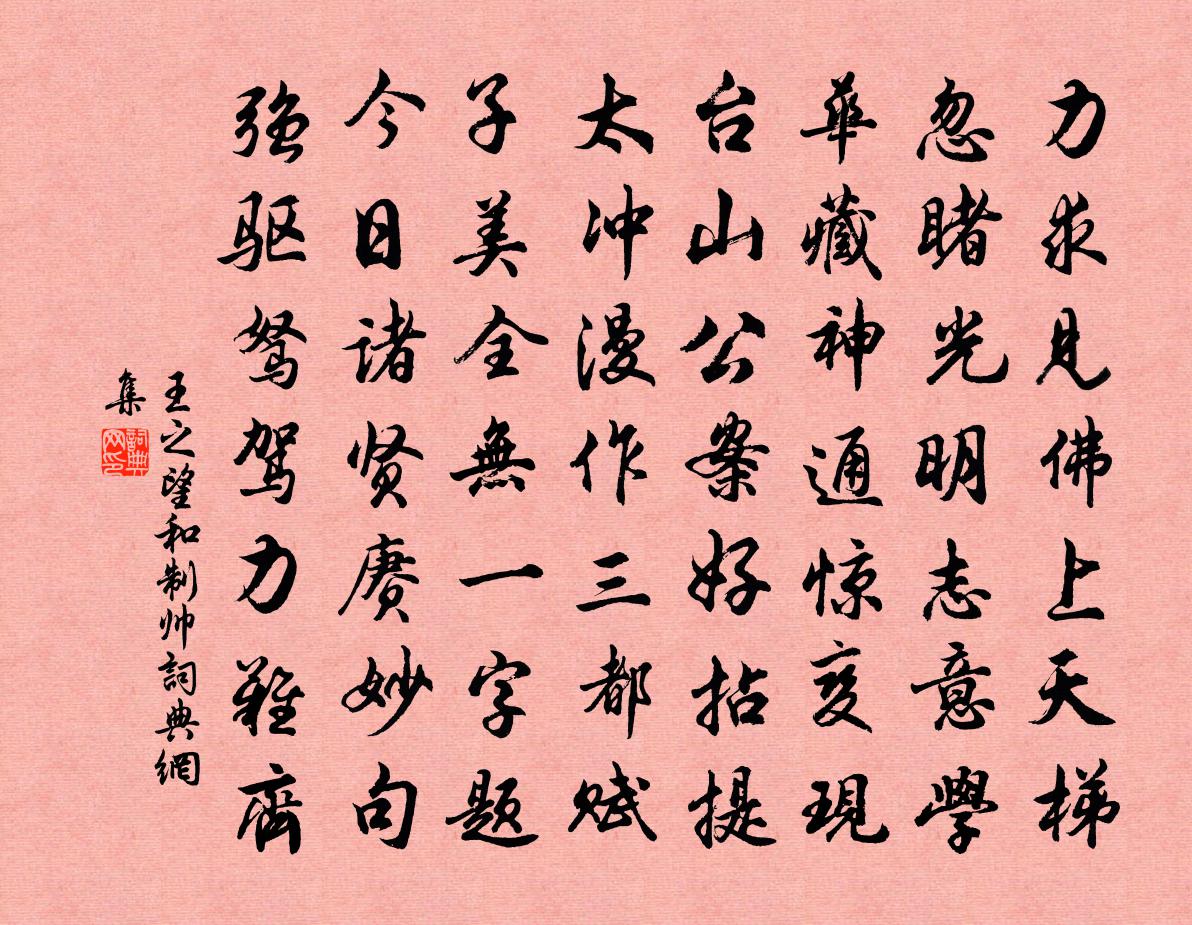 力求見佛上天梯
忽睹光明志意學
華藏神通惊变現
台山公案好拈提
太冲漫作三都赋
子美全無一字题
今日诸贤赓妙句
強驱驽驾力難齊
王之望和制帅詞典網
集
詞典网印